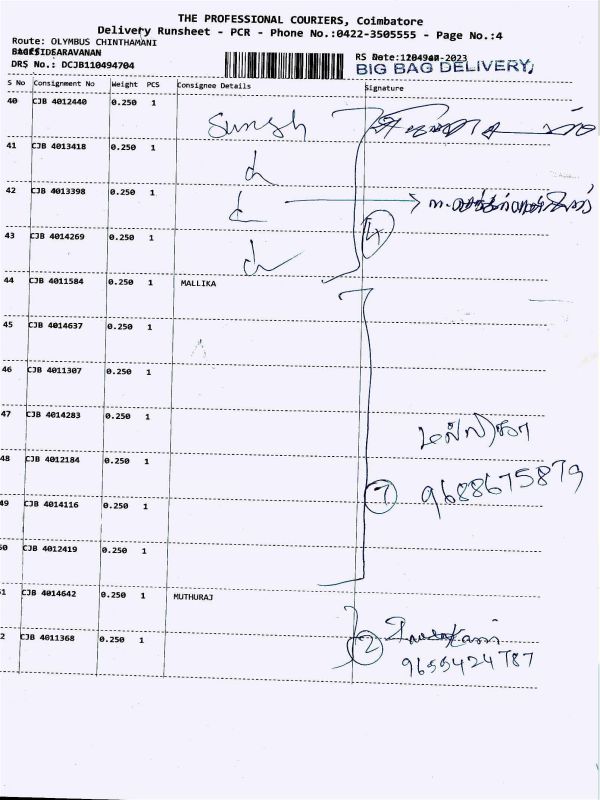 THE PROFESSIONAL COURIERS, Coimbatore
Delivery Runsheet - PCR - Phone No.:0422-3505555 - Page No.:4
Route: OLYMBUS CHINTHAMANI
DRS No.: DCJB110494704
BIG BAG DELIVERY
S No Consignment No Weight PCS Consignee Details Signature
40 CJB 4012440 0.250 1
41 CJB 4013418 0.250 1
42 CJB 4013398 0.250 1
43 CJB 4014269 0.250 1
4
44 CJB 4011584 0.250 1 MALLIKA
45 CJB 4014637 0.250 1
46 CJB 4011307 0.250 1
47 CJB 4014283 0.250 1
மல்லிகா
48 CJB 4012184 0.250 1
7 9688675879
49 CJB 4014116 0.250 1
50 CJB 4012419 0.250 1
51 CJB 4014642 0.250 1 MUTHURAJ
52 CJB 4011368 0.250 1
2
9655424787